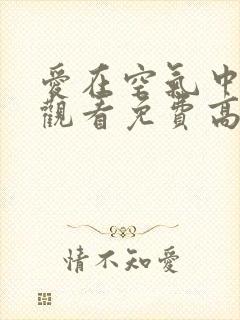 愛在空氣中
觀看免費高
情不知愛